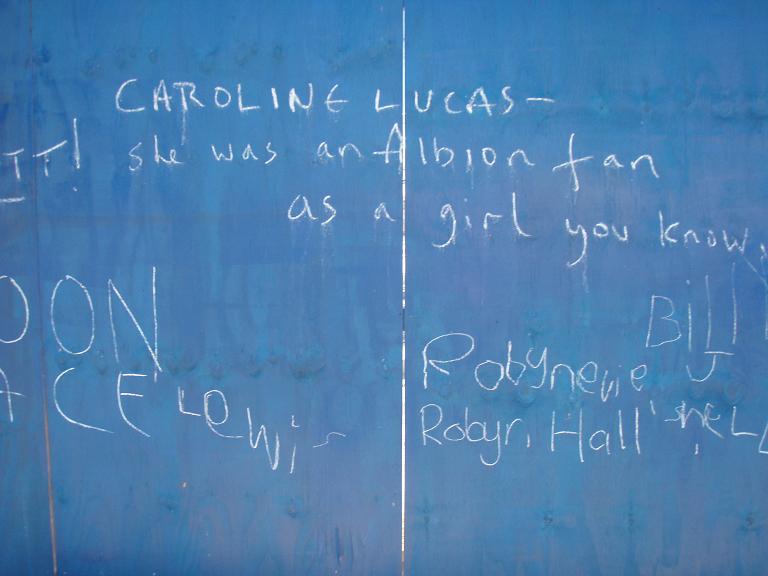 CAROLINE LUCAS-
TT! she was an Albion fan
as a girl you know,
OON
Bill
CE Lewis
Robyn Hall